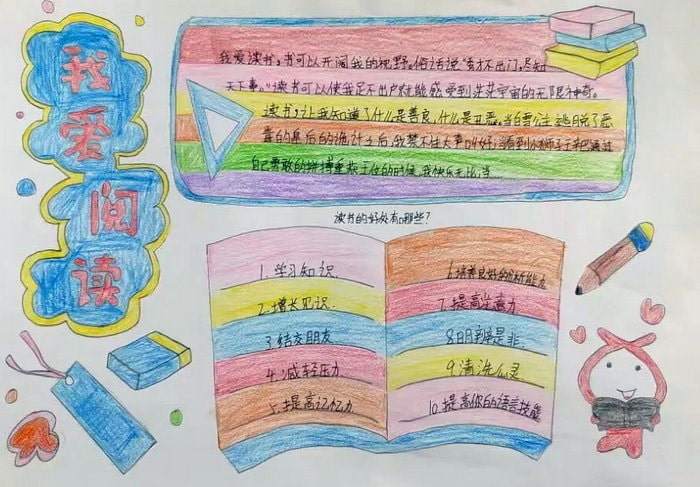 我爱阅读
我爱读书,书可以开阔我的视野。俗话说"秀才不出门,尽知
天下事。"读书可以使我足不出户就能感受到茫茫宇宙的无限神奇。
读书,让我知道了什么是善良,什么是丑恶。当白雪公主逃脱了恶
毒的皇后的诡计之后,我禁不住大声叫好;当看到小狮子王辛巴通过
自己勇敢的拼搏重获王位的时候,我快乐无比,
读书的好处有哪些?
1.学习知识
2.增长见识
3.结交朋友
4.减轻压力
5.提高记忆力
6.培养良好的分析能力
7.提高注意力
8.明辨是非
9.清洗心灵
10.提高你的语言技能